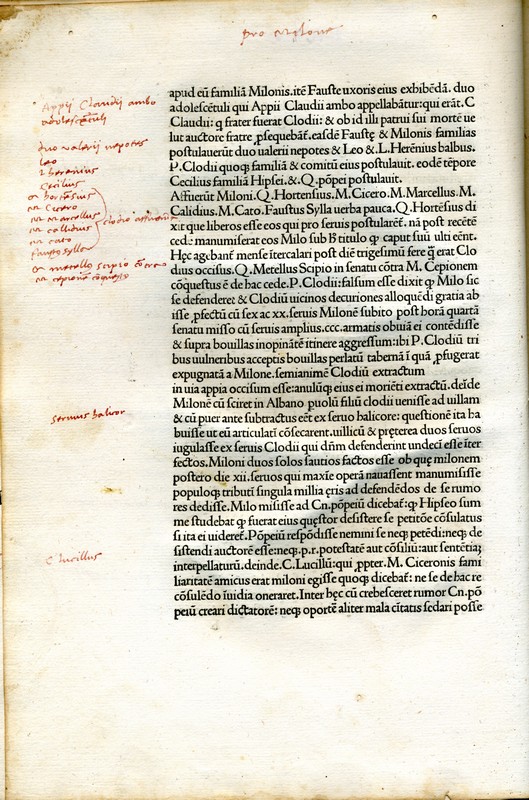 pro milone
Appii Claudii ambo
adolescētuli
duo valerii nepotes
leo
l herenius
Cecilius
q hortensius
m Cicero
m marcellus
m callidius
m cato
faustus sylla
q metello scipio
m cepionē cōquesto
seruus halicor
C lucillus
apud eū familiā Milonis.itē Fauste uxoris eius exhibēdā. duo
adolescētuli qui Appii Claudii ambo appellabātur: qui erāt. C
Claudii: q frater fuerat Clodii: & ob id illi patrui sui mortē ue
lut auctore fratre ꝓsequebāt. easdē Faustę & Milonis familias
postulauerūt duo ualerii nepotes & Leo & L. Herēnius balbus.
P. Clodii quoqȝ familiā & comitū eius postulauit. eodē tēpore
Cecilius familiā Hipsei. & .Q. pōpei postulauit.
Affuerūt Miloni. Q. Hortensius. M. Cicero. M. Marcellus. M.
Calidius. M. Cato. Faustus Sylla uerba pauca. Q. Hortēsius di
xit que liberos esse eos qui pro seruis postularēt. nā post recētē
cedē manumiserat eos Milo sub titulo ꝙ caput suū ulti eēnt.
Hęc agebant mense itercalari post diē trigesimū fere q̄ erat Clo
dius occisus. Q. Metellus Scipio in senatu cōtra M. Cepionem
cōquestus ē de hac cede. P. Clodii: falsum esse dixit ꝙ Milo sic
se defenderet & Clodiū uicinos decuriones alloquēdi gratia ab
isse ꝓfectū cū sex ac xx. seruis Milonē subito post horā quartā
senatu misso cū seruis amplius .ccc. armatis obuiā ei contēdisse
& supra bouillas inopinātē itinere aggressum: ibi P. Clodiū tri
bus uulneribus acceptis bouillas perlatū tabernā ī quā ꝓfugerat
expugnatā a Milone. semianimē Clodiū extractum
in uia appia occisum esse: anulūqȝ eius ei moriēti extractū. deīde
Milonē cū sciret in Albano puolū filiū clodii uenisse ad uillam
& cū puer ante subtractus eēt ex seruo halicore: questionē ita ha
buisse ut eū articulatī cōsecarent. uillicū & pręterea duos seruos
iugulasse ex seruis Clodii qui dñm defenderint undecī esse īter
fectos. Miloni duos solos sautios factos esse ob quę milonem
postero die xii. seruos qui maxīe operā nauassent manumisisse
populoqȝ tributī singula millia ęris ad defendēdos de se rumo
res dedisse. Milo misisse ad Cn. pōpeiū dicebat: ꝙ Hipseo sum
me studebat ꝙ fuerat eius quęstor desistere se petitōe cōsulatus
si ita ei uideret. Pōpeiū respōdisse nemini se neqȝ petēdi: neqȝ de
sistendi auctorē esse: neqȝ .p.r. potestatē aut cōsiliū: aut sentētiā
interpellaturū. deinde. C. Lucillū: qui ꝓpter. M. Ciceronis fami
liaritatē amicus erat miloni egisse quoqȝ dicebat: ne se de hac re
cōsulēdo īuidia oneraret. Inter hęc cū crebesceret rumor Cn. pō
peiū creari dictatorē: neqȝ oportē aliter mala ciuitatis sedari posse